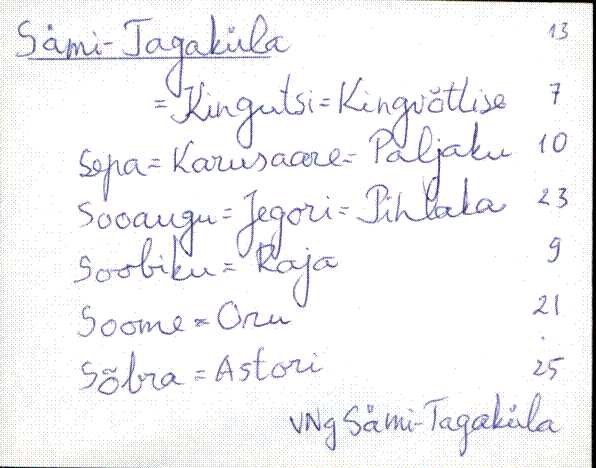 Sämi-Tagaküla 13
= Kingutsi = Kingvõtlise 7
Sepa = Karusaare = Paljaku 10
Sooaugu = Jegori = Pihlaka 23
Soobiku = Raja 9
Soome = Oru 21
Sõbra = Astori 25
VNg Sämi-Tagaküla